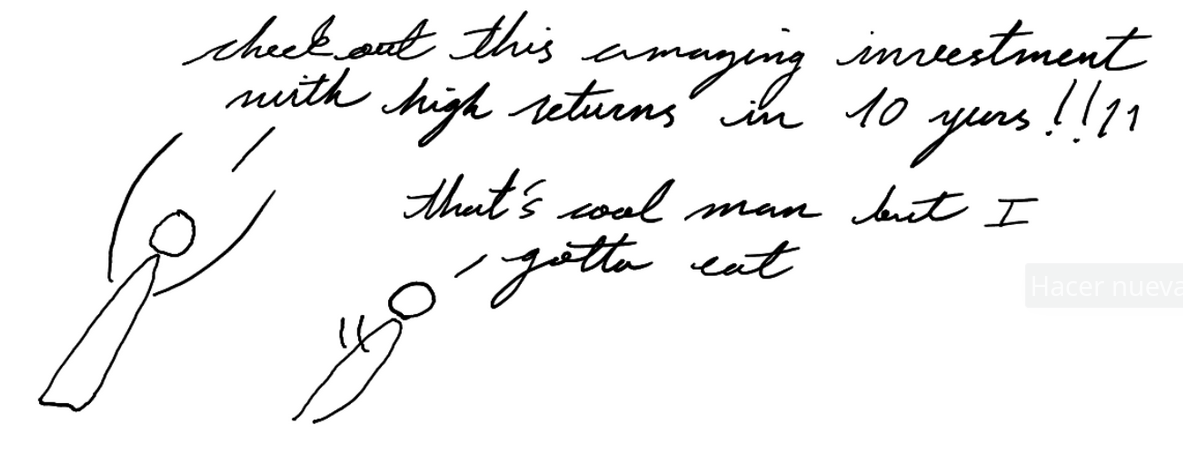 check out this amazing investment
with high returns in 10 yeurs!!11
that's cool man but I
gotta eat
Hacer nueva